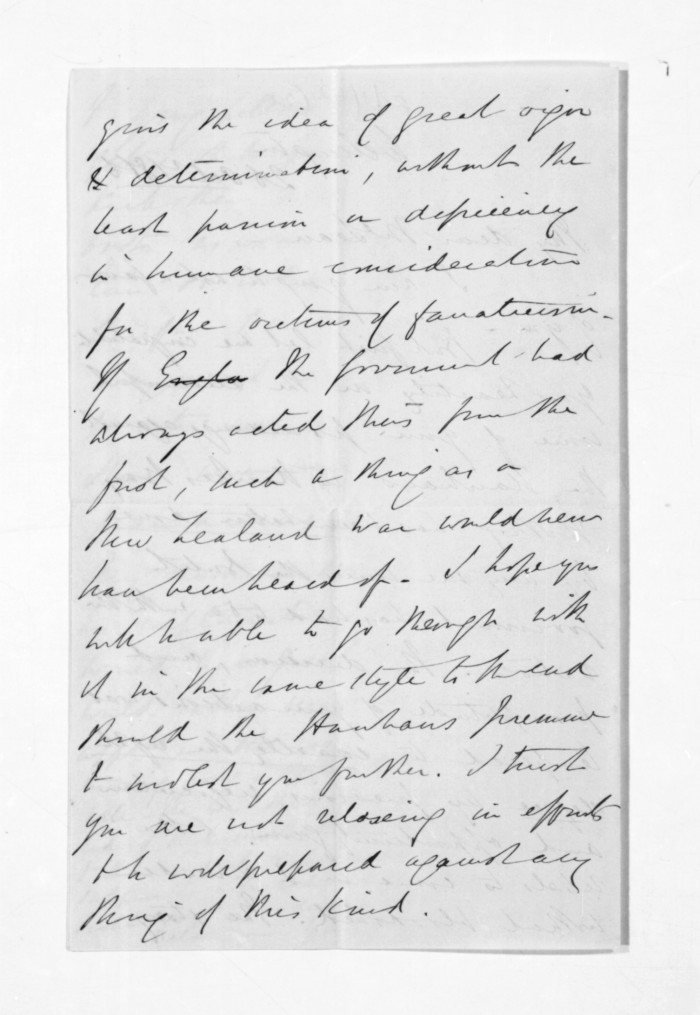 gives the idea of great vigor
& determination, without the
least passion or deficiency
in humane consideration
for the victims of fanaticism -
If Engla the Goverment had
always acted thus from the
first, such a thing as a
New Zealand war would never
have been heard of - I hope you
will be able to go through with
it in the same style to the end
should the Hauhaus presume
to molest you further. I trust
you are not relaxing in efforts
to be well prepared against any
thing of this kind.